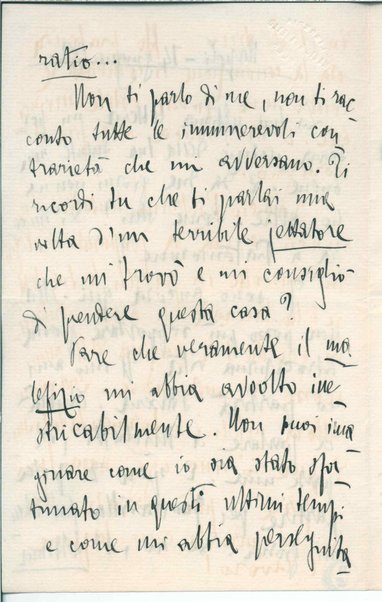 ratio...
Non ti parlo di me, non ti rac
conto tutte le innumerevoli con
trarietà che mi avversano. Ti
ricordi tu che ti parlai una
volta d'un terribile jettatore
che mi trovò e mi consigliò
di prendere questa casa?
Pare che veramente il ma
lefizio mi abbia avvolto ine
stricabilmente. Non puoi ima
ginare come io sia stato sfor
tunato in questi ultimi tempi
e come mi abbia perseguita